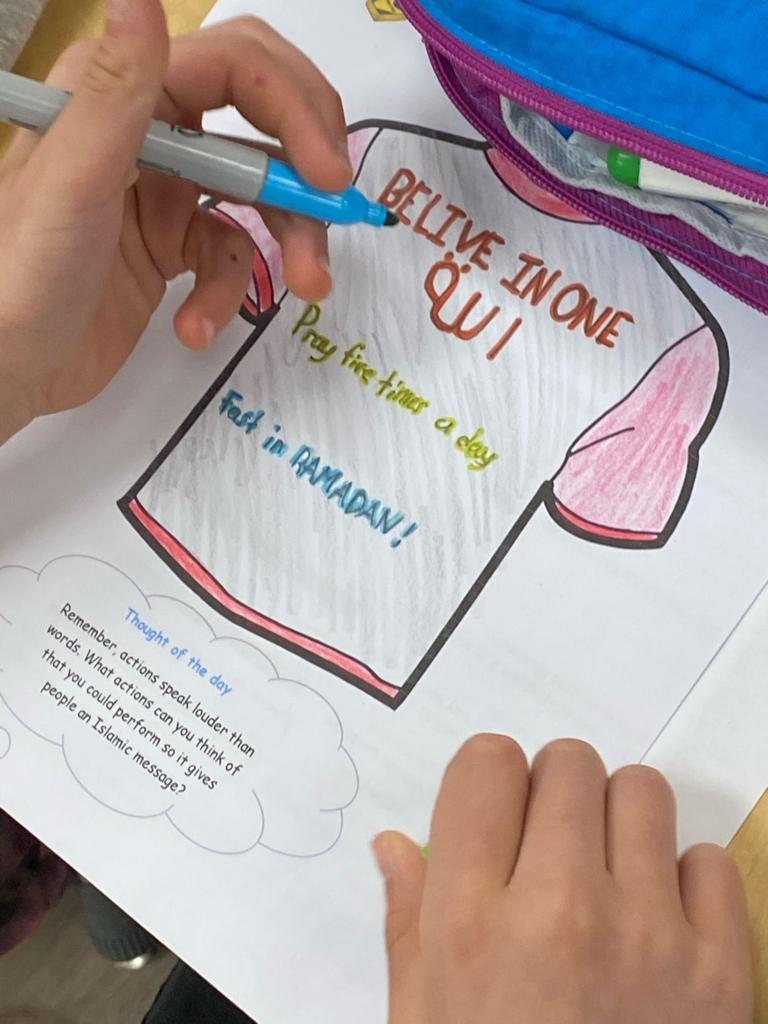 BELIVE IN ONE
Pray five times a day
Fast in RAMADAN!
Thought of the day
Remember, actions speak louder than
words. What actions can you think of
that you could perform so it gives
people an Islamic message?